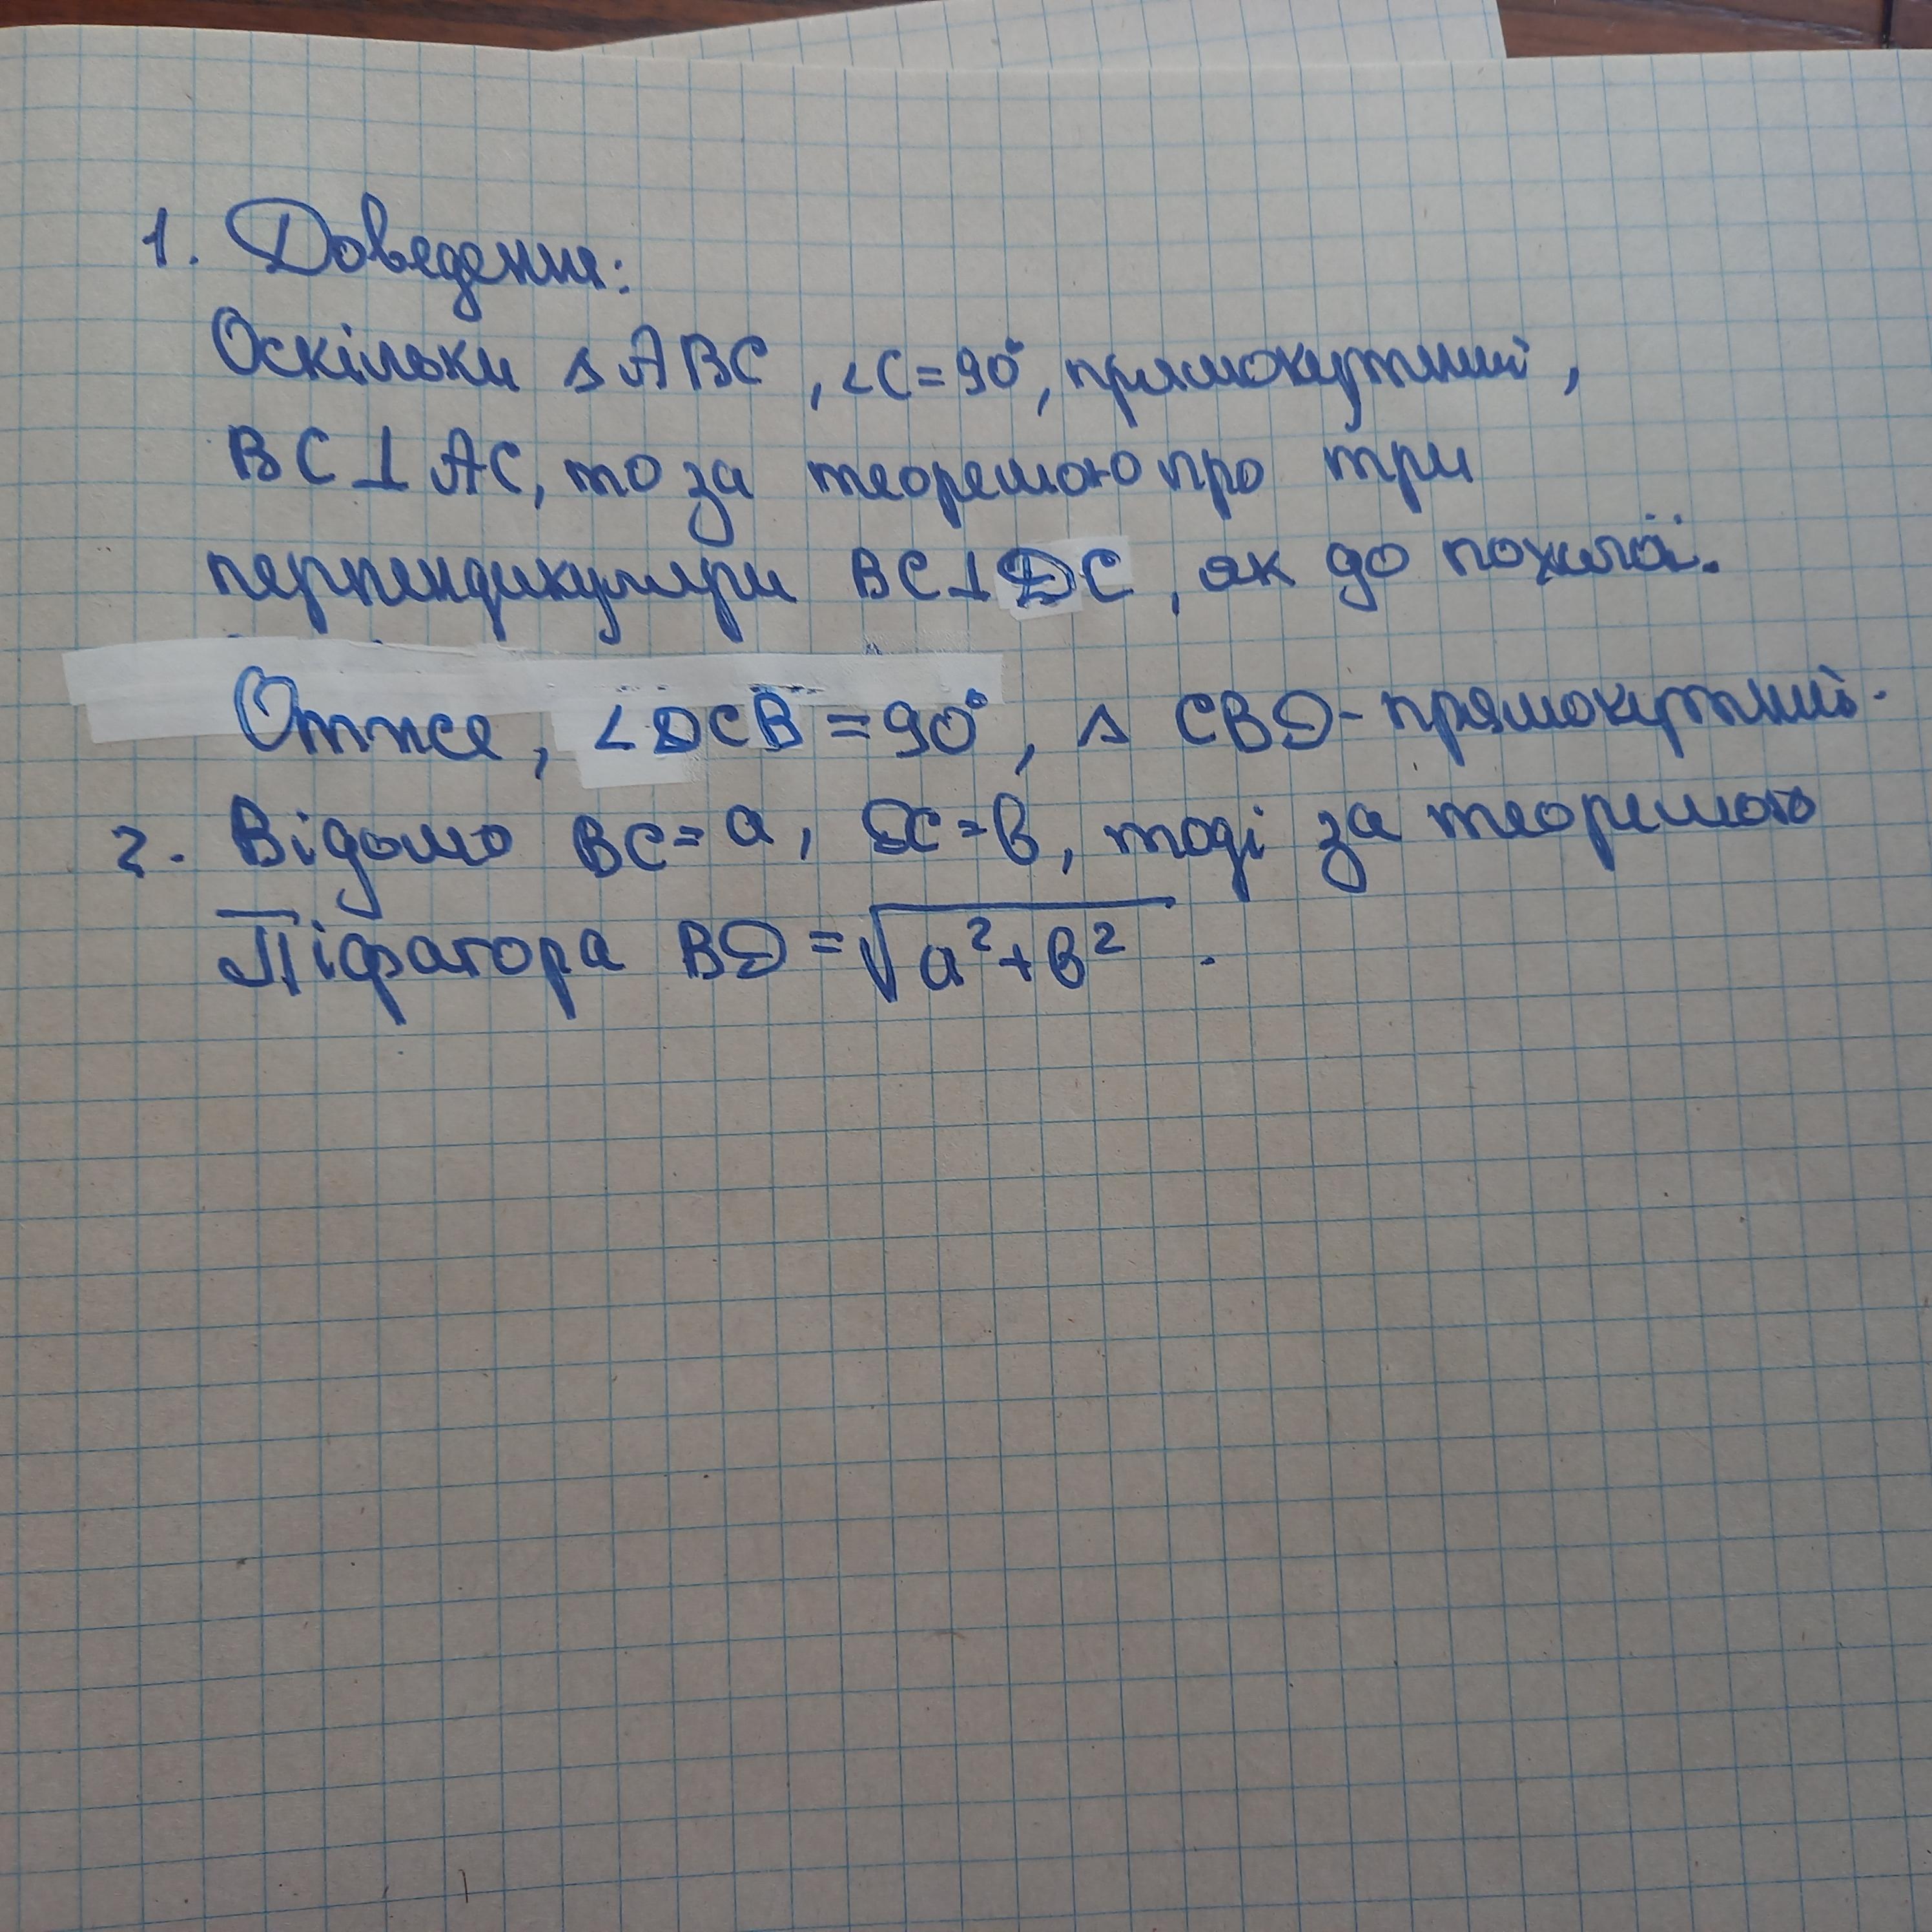 1. Доведення:
Оскільки △ABC, ∠C=90°, прямокутний,
BC⊥AC, то за теоремою про три
перпендикуляри BC⊥DC, як до похилої.
Отже, ∠DCB=90°, △ CBD-прямокутний.
2. Відомо BC=a, DC=b, тоді за теоремою
Піфагора BD=√a²+b² .